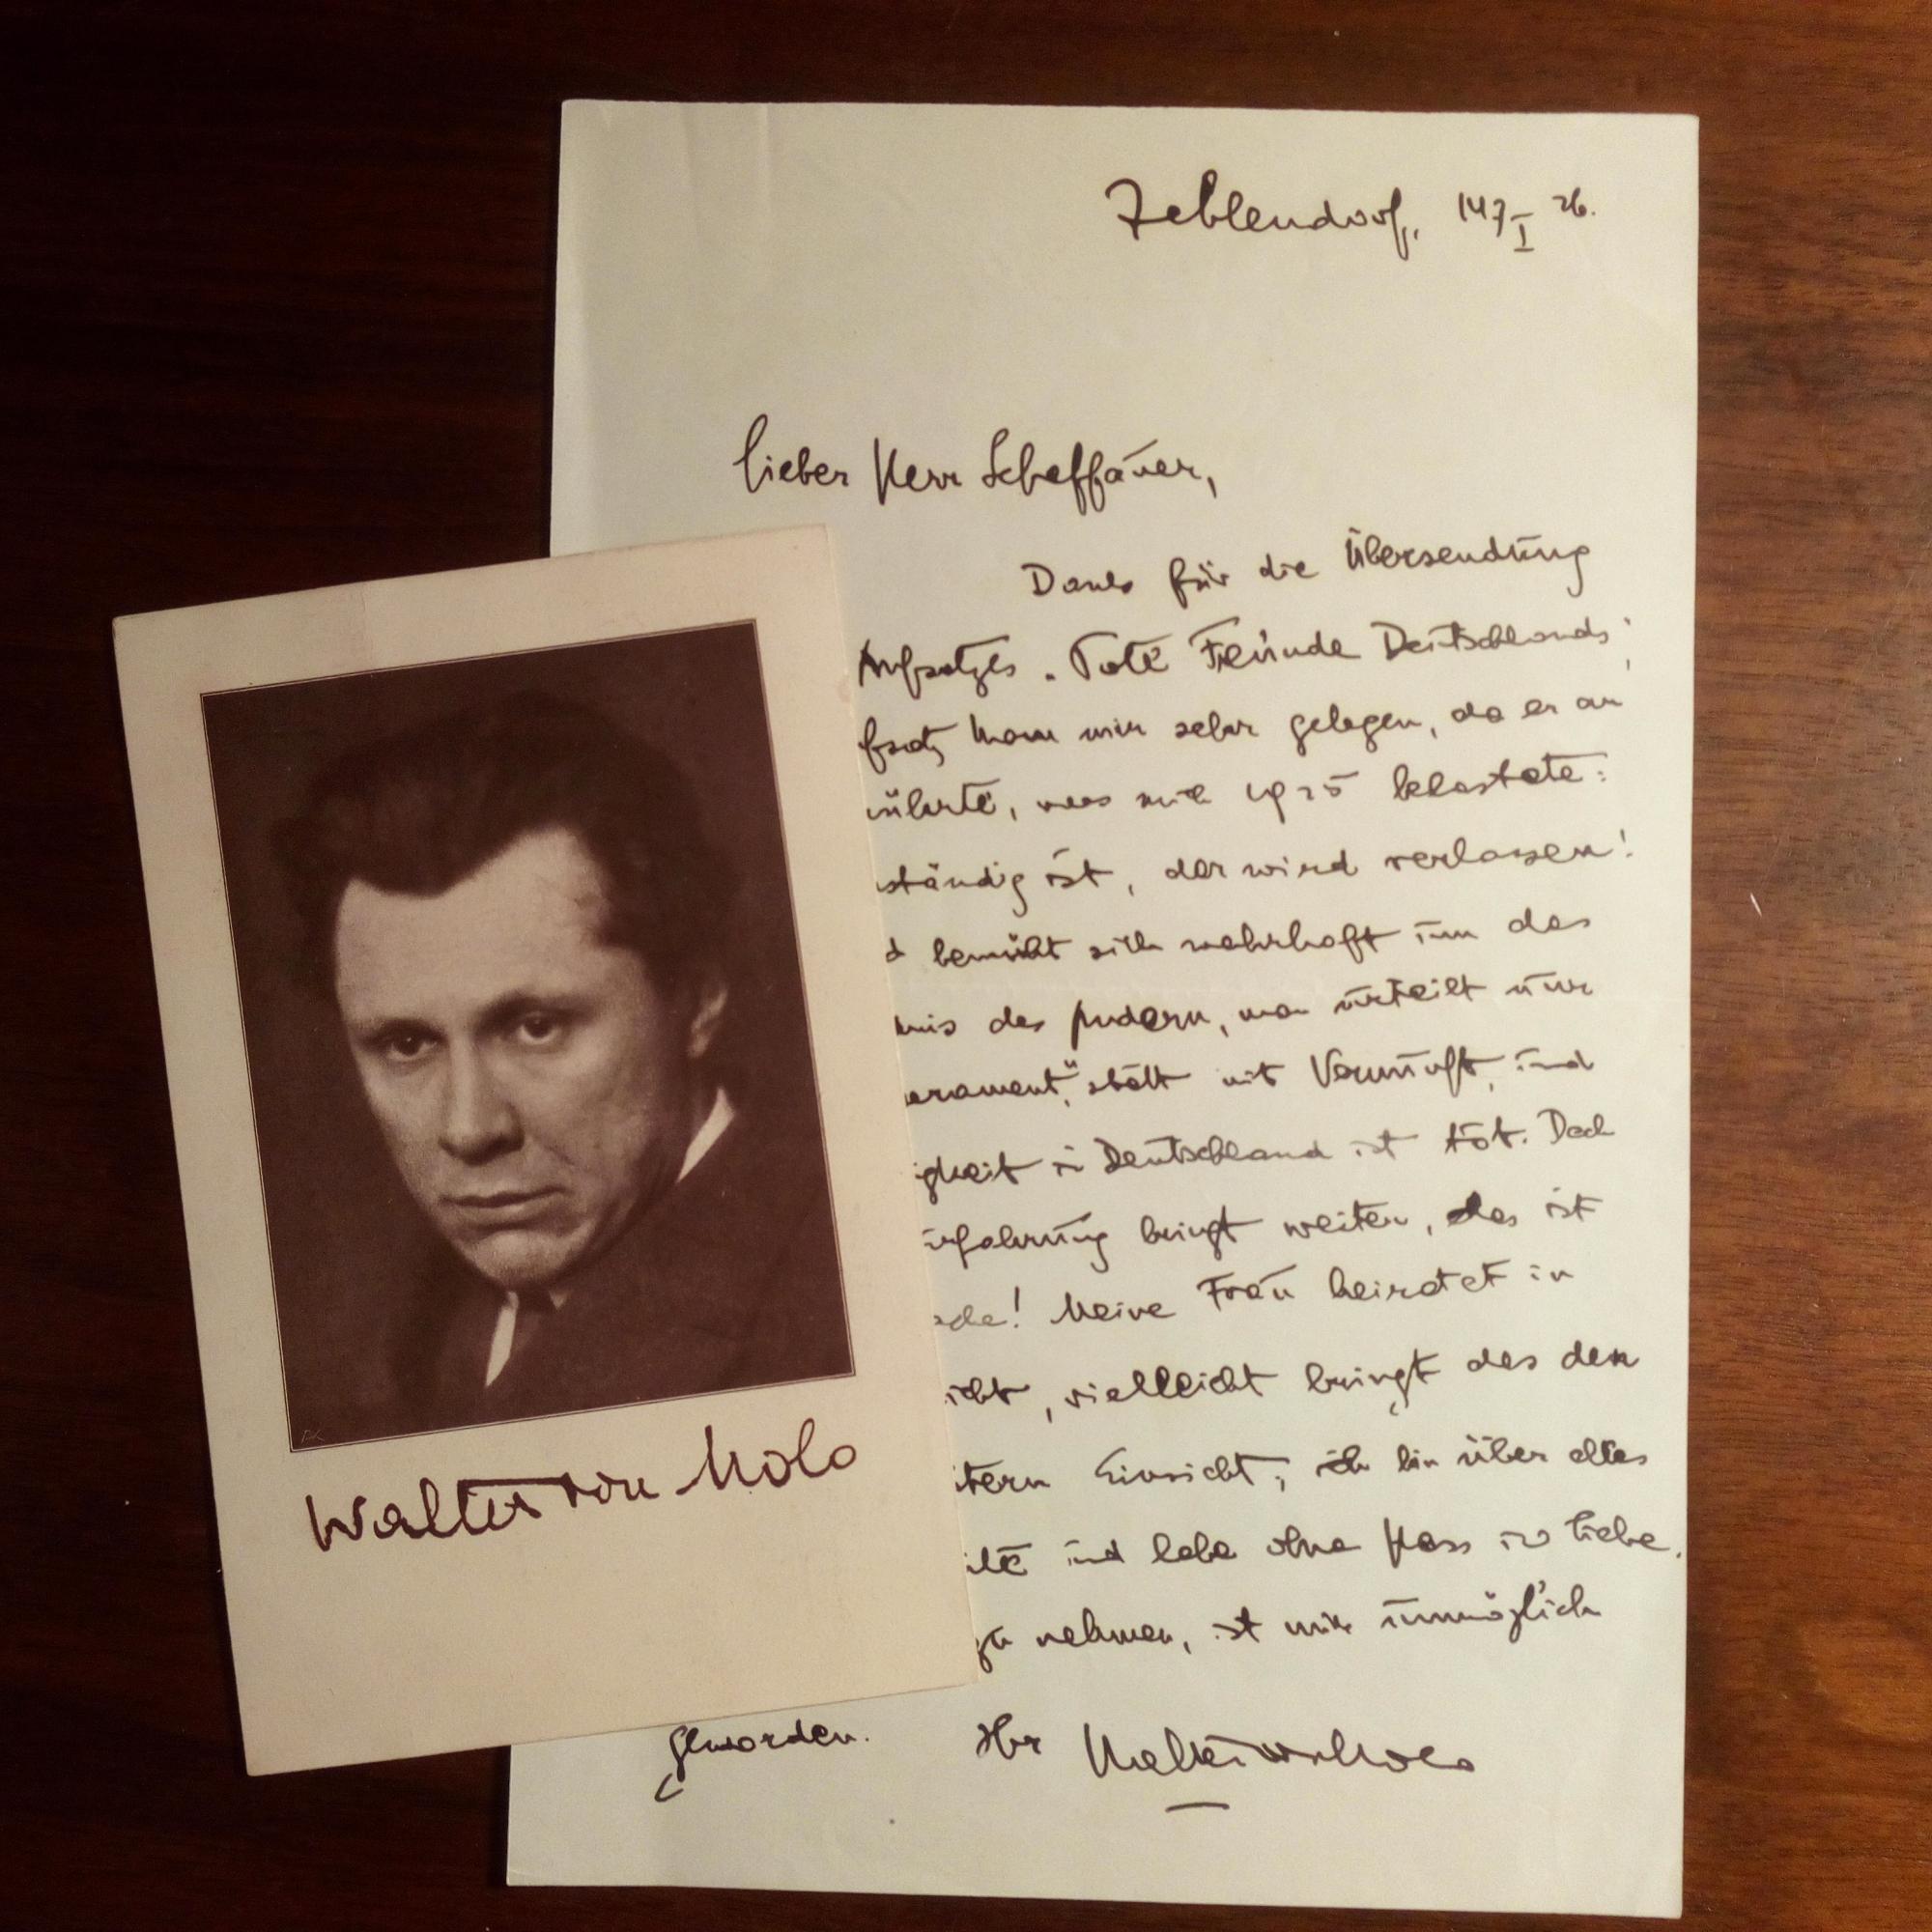 Zehlendorf,
lieber Herr Scheffauer,
Dank für die Übersendung
Aufsatzes „Tote Freunde Deutschlands“,
fsatz kam mir sehr gelegen, da er an
rührte, was mich 1925 belastete:
ständig ist, der wird verlassen!
d bemüht sich wahrhaft um das
nis des Andern, man urteilt nur
erament“, statt mit Vernunft, und
igkeit in Deutschland ist tot. Doch
rfahrung bringt weiter, das ist
ache! Meine Frau heiratet in
icht, vielleicht bringt das den
tern Einsicht; ich bin über alles
und lebe ohne Hass in Liebe.
zu nehmen, ist mir unmöglich
geworden. Ihr Walter von Molo
Walter von Molo